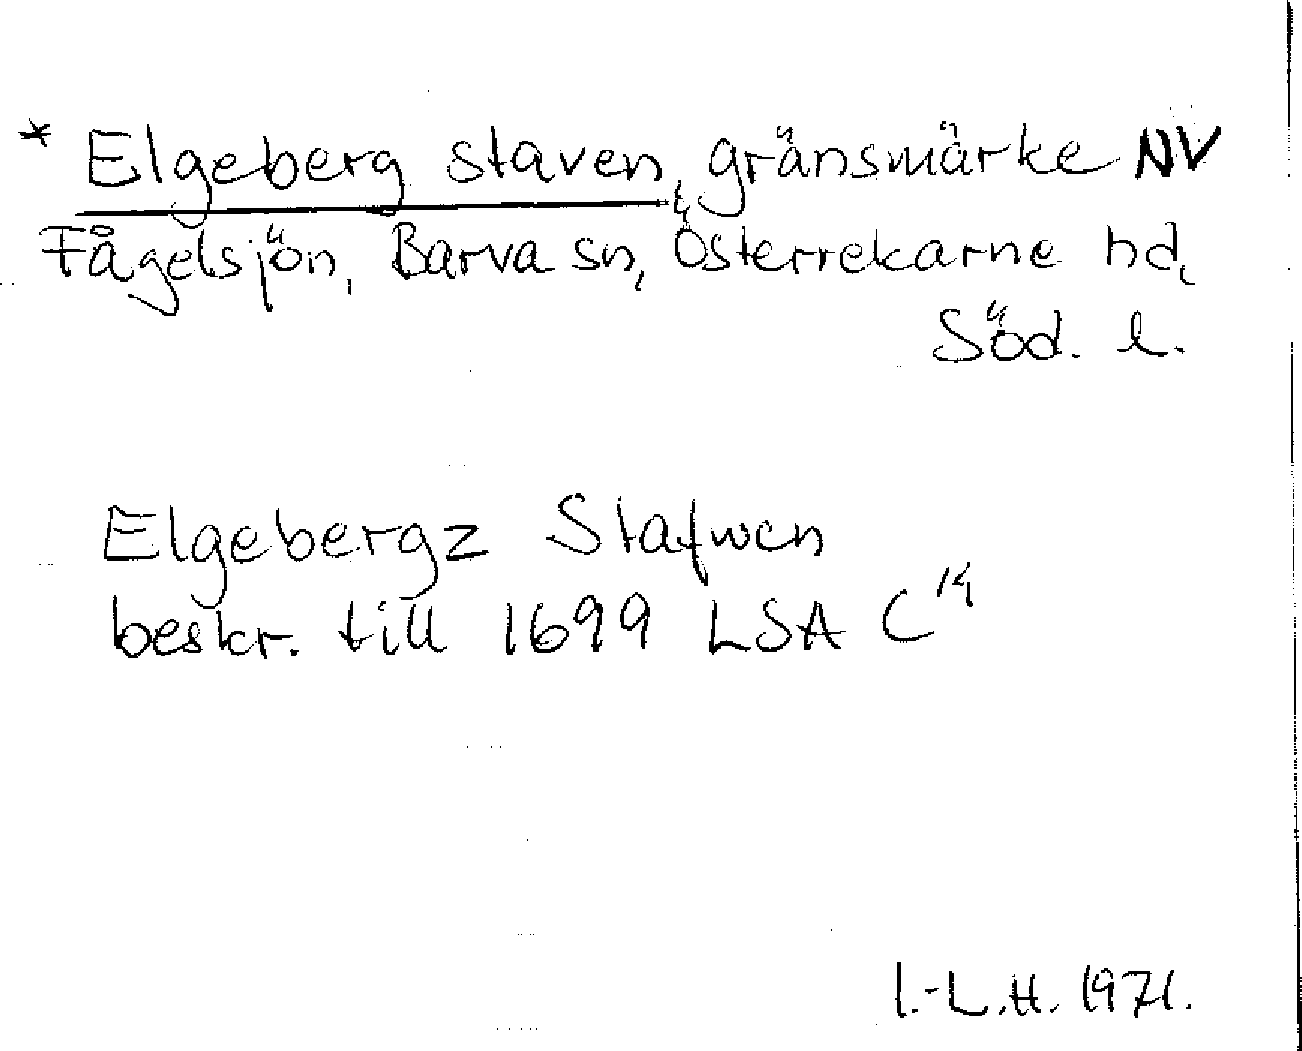 * Elgeberg staven, gränsmärke NV
Fågelsjön, Barva sn, Österrekarne hd,
Söd. l.
Elgebergz Stafwen
beskr. till 1699 LSA C¹⁴
I.-L.H. 1971.